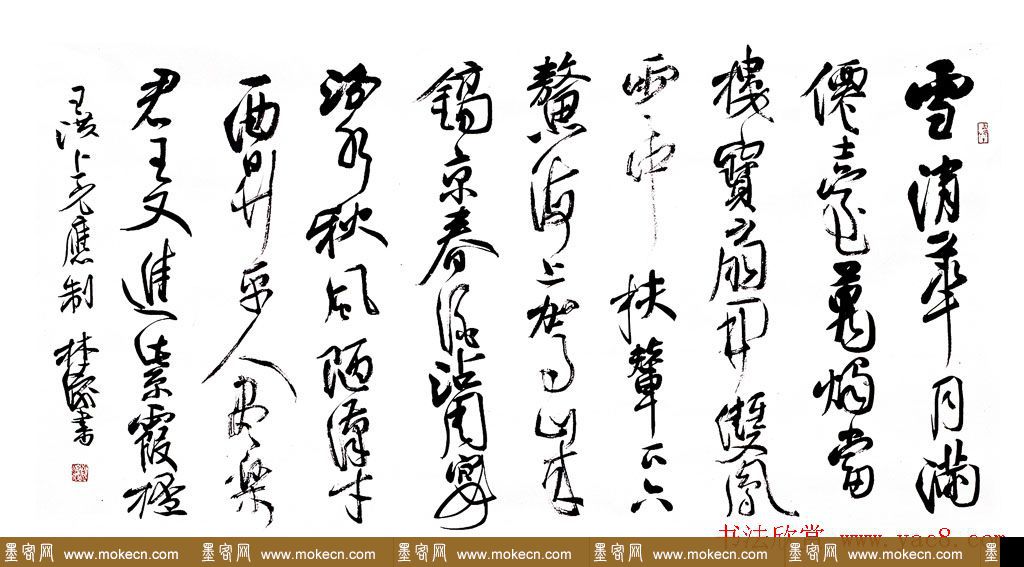 雪消華月滿
僊臺萬燭當
樓寶扇開雙鳳
雲中扶輦下六
鰲海上駕山來
鎬京春酒沾周宴
汾水秋風陋漢才
一曲昇平人盡樂
君王又進紫霞
王淇上元應制 林書
书法欣赏 www.yac8.com
墨客网 www.mokecn.com 墨客网 www.mokecn.com 墨客网 www.mokecn.com 墨客网 www.mokecn.com 墨客网